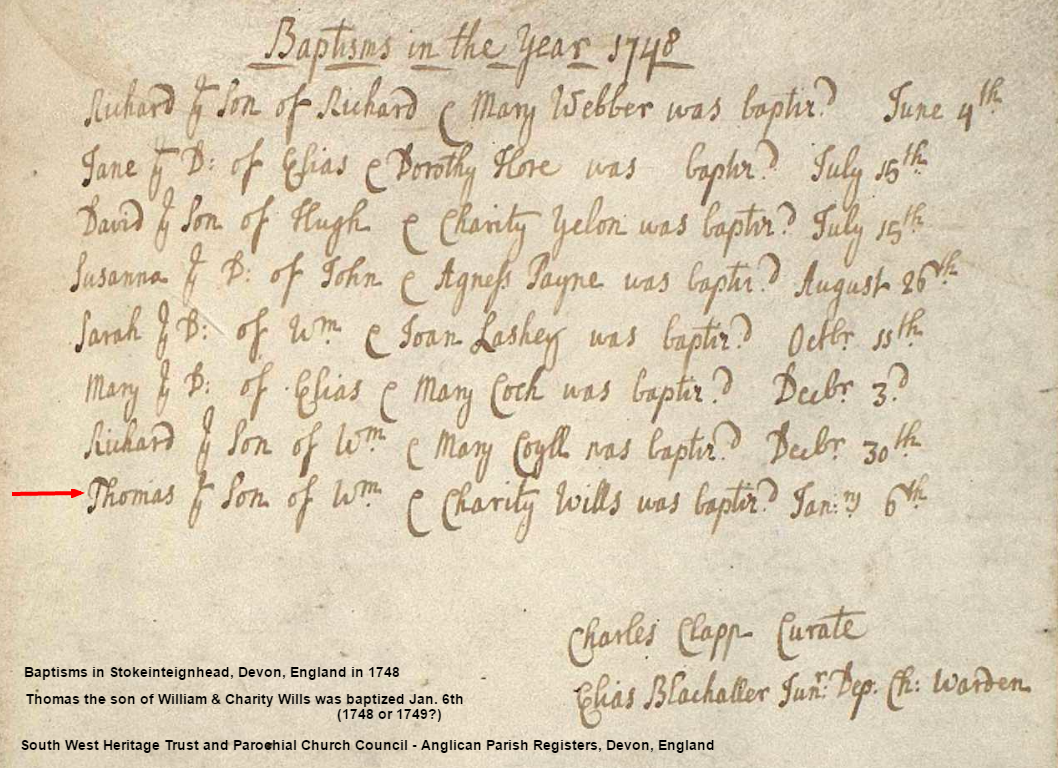 Baptisms in the Year 1748
Richard ye Son of Richard & Mary Webber was baptiz'd June 4th
Jane ye D: of Elias & Dorothy Hore was baptiz'd July 15th
David ye Son of Hugh & Charity Yelon was baptiz'd July 15th
Susanna ye D: of John & Agness Payne was baptiz'd August 26th
Sarah ye D: of Wm & Joan Laskey was baptiz'd Octbr 11th
Mary ye D: of Elias & Mary Cock was baptiz'd Decbr 3d
Richard ye Son of Wm & Mary Coyll was baptiz'd Decbr 30th
Thomas ye Son of Wm & Charity Wills was baptiz'd Jan:ry 6th
Charles Clapp Curate
Elias Blackaller Junr: Dep: Ch: Warden
Baptisms in Stokeinteignhead, Devon, England in 1748
Thomas the son of William & Charity Wills was baptized Jan. 6th
(1748 or 1749?)
South West Heritage Trust and Parochial Church Council - Anglican Parish Registers, Devon, England